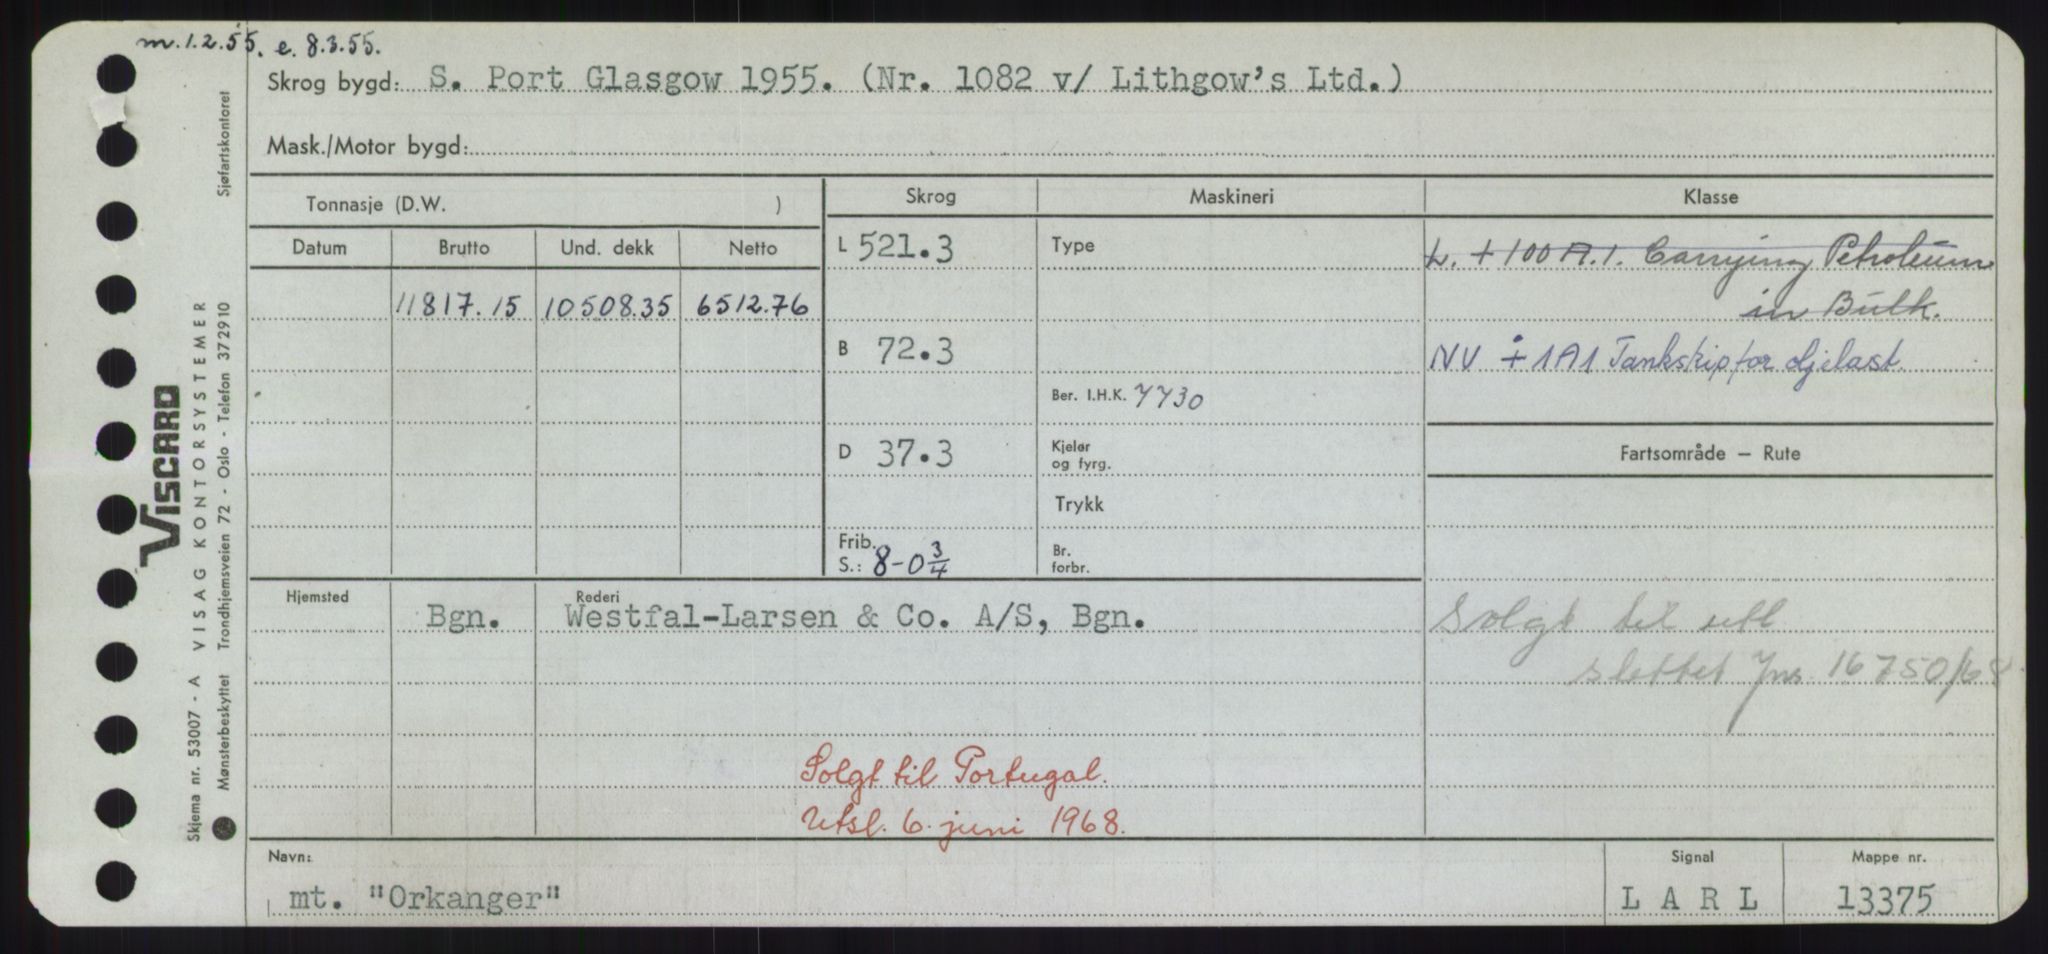 m. 1.2.55. e. 8.3.55.
Skrog bygd: S. Port Glasgow 1955. (Nr. 1082 v/ Lithgow's Ltd.)
Mask./Motor bygd:
Tonnasje (D.W. )
Skrog
Maskineri
Klasse
Datum Brutto Und. dekk Netto
L 521.3
Type
L. + 100 A.1. Carrying Petroleum
in Bulk.
11817.15 10508.35 6512.76
B 72.3
NV + 1A1 Tankskip for oljelast.
Ber. I.H.K. 7730
D 37.3
Kjeler
og fyrg.
Fartsområde – Rute
Trykk
Frib.
S.: 8-0 3/4
Br.
forbr.
Hjemsted Bgn.
Rederi
Westfal-Larsen & Co. A/S, Bgn.
Solgt til utl
slettet Jnr. 16750/68
Solgt til Portugal.
Utsl. 6. juni 1968.
Navn: mt. "Orkanger"
Signal
L A R L
Mappe nr.
13375
VISCARD
Skjema nr. 53007 - A VISAG KONTORSYSTEMER
Mønsterbeskyttet Trondhjemsveien 72 - Oslo - Telefon 372910 Sjøfartskontoret